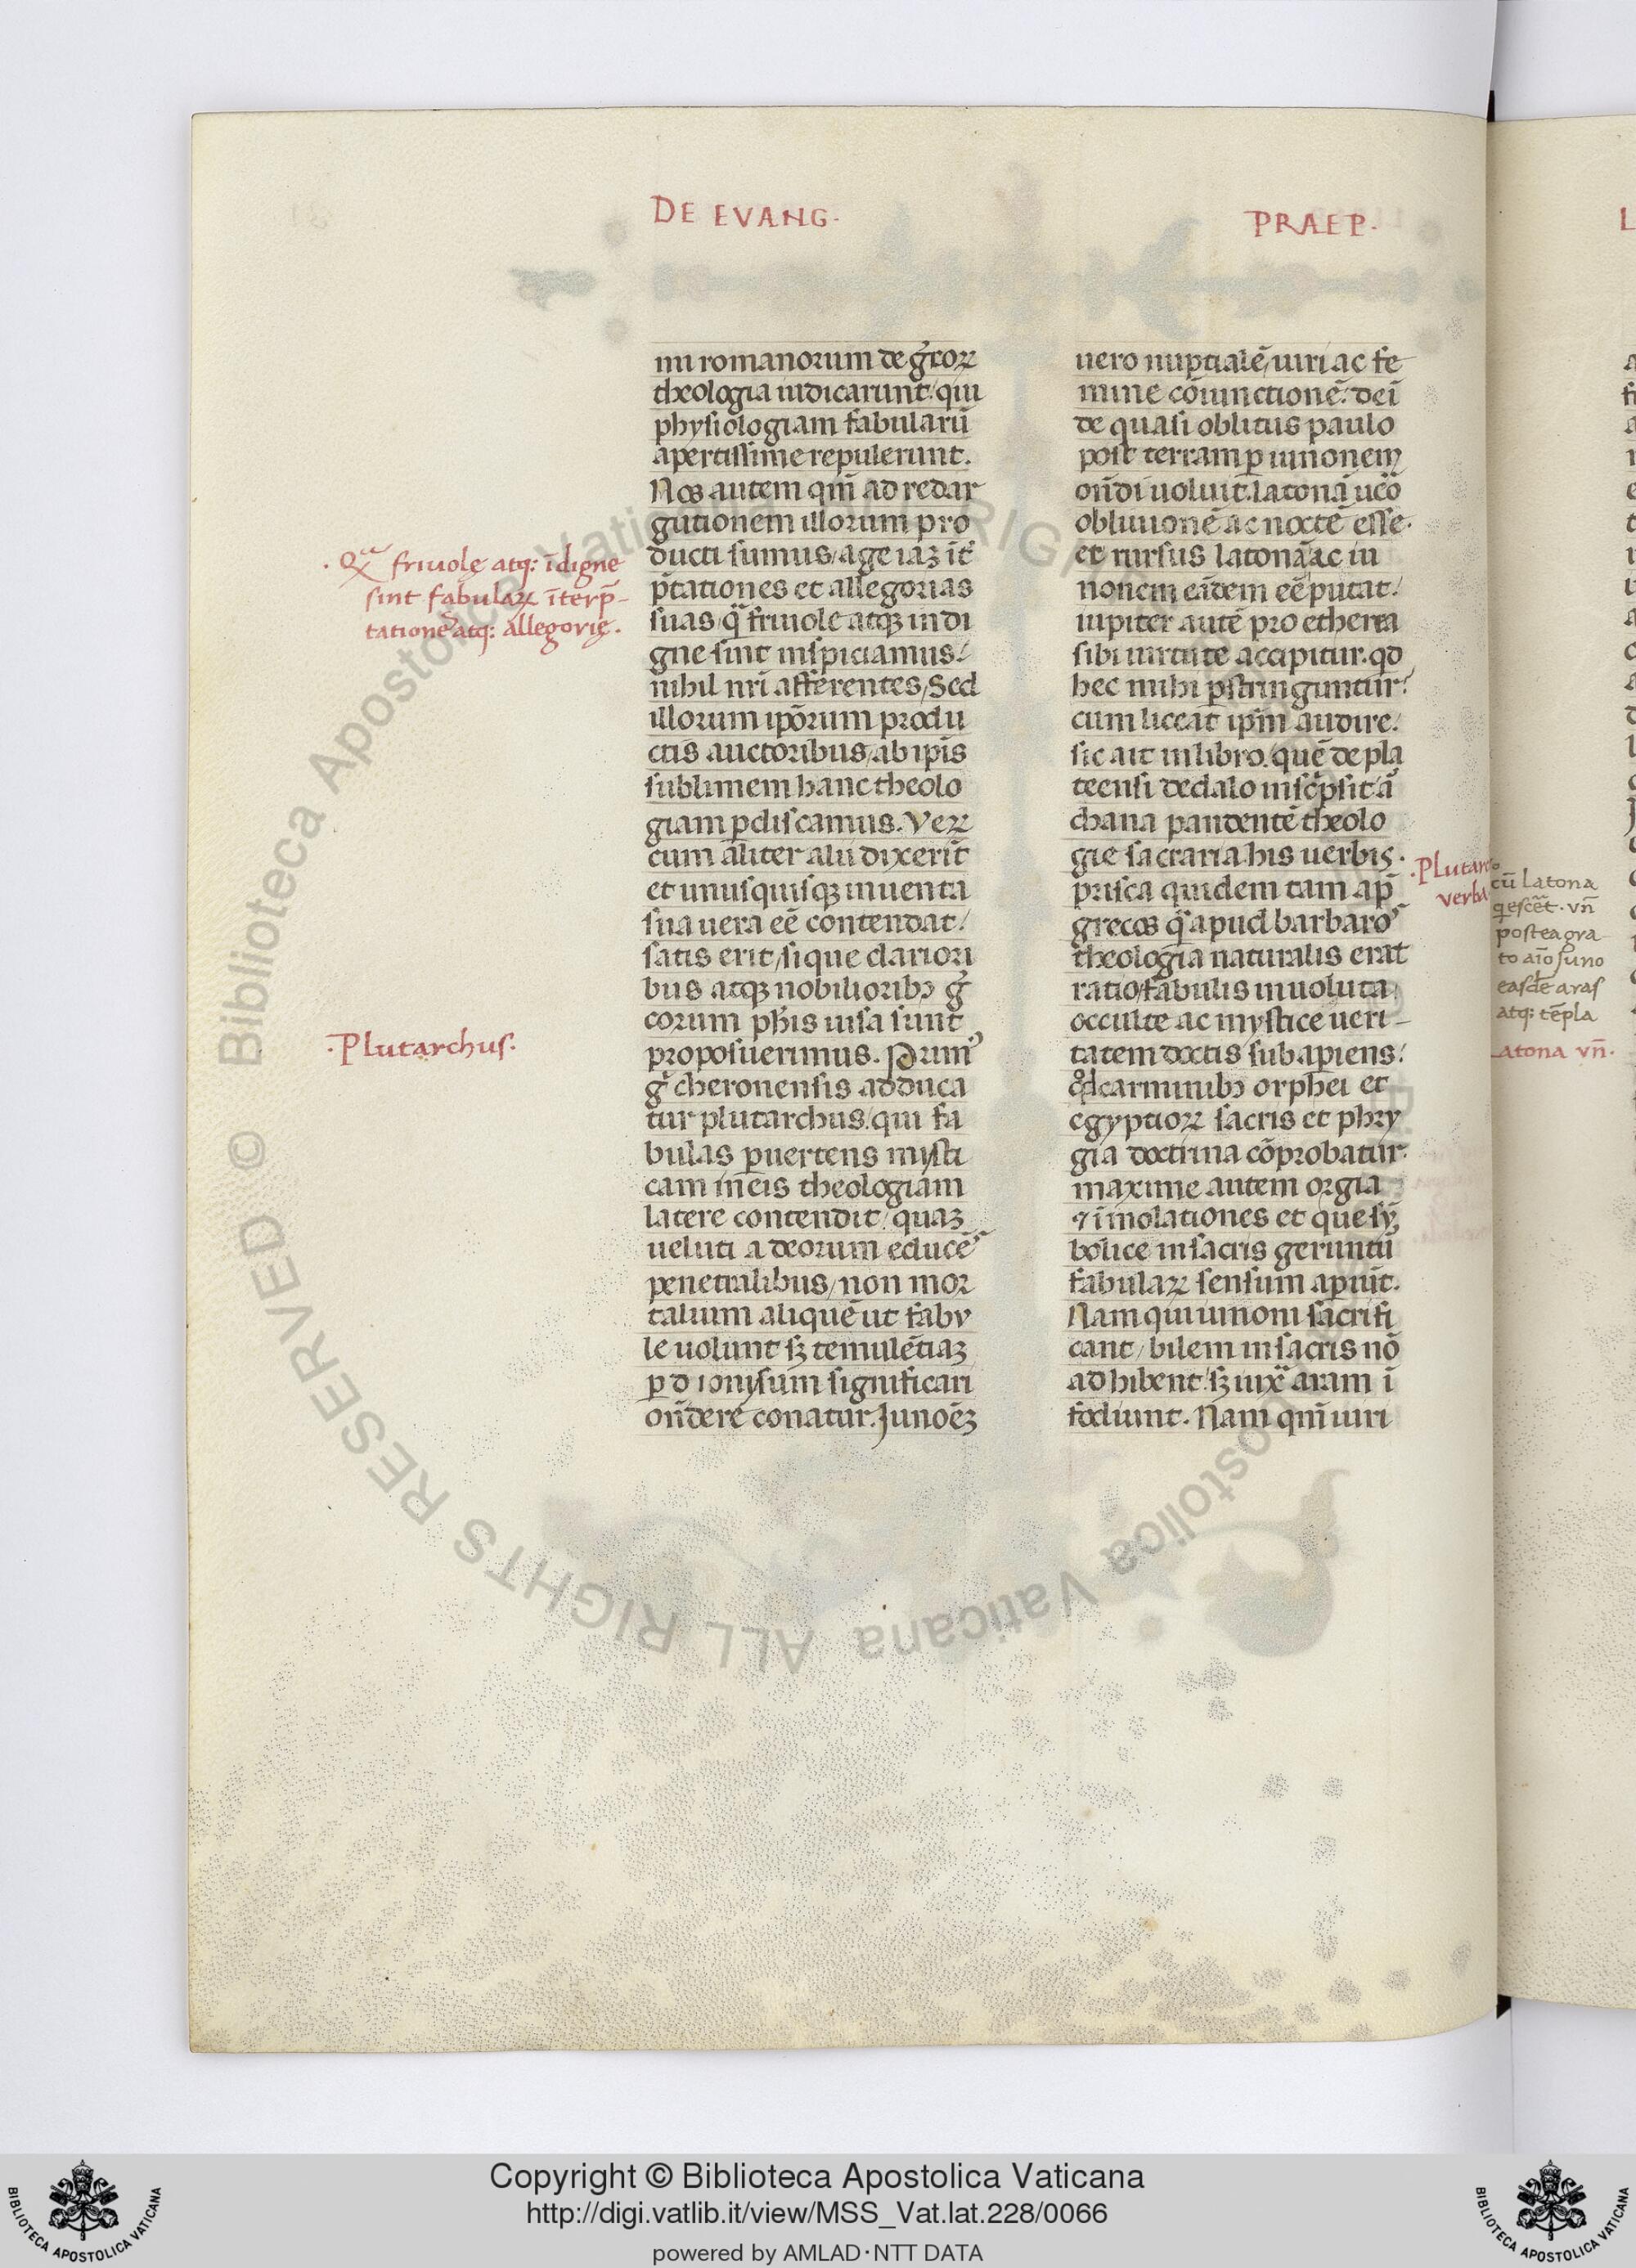 DE EVANG.
PRAEP.
mi romanorum de g̃corꝝ
theologia iudicarunt: qui
physiologiam fabularũ
apertissime repulerunt.
Nos autem qm̃ ad redar
gutionem illorum pro
ducti sumus/ age iaꝫ ĩt
p̃tationes et allegorias
suas q̃ friuole atqꝫ indi
gne sint inspiciamus:
nihil nr̃i afferentes/ Sed
illorum ipõrum produ
ctis auctoribus/ ab ipĩs
sublimem hanc theolo
giam ꝑdiscamus. Veꝝ
cum aliter alii dixerĩt
et unusquisqꝫ inuenta
sua uera eẽ contendat/
satis erit/ si que clariori
bus atqꝫ nobilioribꝫ g̃
corum ph̃is uisa sunt
proposuerimus. Primꝰ
g̃ cheronensis adduca
tur plutarchus/ qui fa
bulas ꝑuertens mysti
cam in eis theologiam
latere contendit/ quaꝫ
ueluti a deorum educẽs
penetralibus/ non mor
talium aliquẽ ut fabu
le uolunt sꝫ temulẽtiaꝫ
ꝑ dionysum significari
oñdere conatur. Junoẽꝫ
uero nuptialẽ/ uiri ac fe
mine cõiunctionẽ: deĩ
de quasi oblitus paulo
post terram ꝑ iunonem
oñdi uoluit. latonã ũco
obliuionẽ ac noctẽ esse.
et rursus latonã ac iu
nonem eãdem eẽ putat/
iupiter autẽ pro etherea
sibi uirtute accipitur. qd
hec mihi ꝑstringuntur:
cum liceat ipm̃ audire/
sic ait in libro. quẽ de pla
teensi dedalo inscͥpsit ã
chana pandentẽ theolo
gie sacraria his uerbis.
prisca quidem tam ap̃
grecos q̃ apud barbaros
theologia naturalis erat
ratio/ fabulis inuoluta
occulte ac mystice ueri-
tatem doctis subapiens/
qd carminibꝫ orphei et
egyptiorꝝ sacris et phry
gia doctrina cõprobatur.
maxime autem orgia
⁊ ĩmolationes et que sỹ
bolice in sacris geruntũ
fabularꝝ sensum aꝑiũt.
Nam qui iunoni sacrifi
cant/ bilem in sacris nõ
adhibent/ sꝫ iux̃ aram ĩ
fodiunt. Nam qm̃ uiri
. Qᵃ friuolę atq: ĩdigne
sint fabularꝝ ĩterp̃-
tationes atq: allegorię.
·Plutarchus·
·Plutarc
verba
cũ latona
qescẽt. vñ
postea gra
to aĩo Juno
easdẽ aras
atq: tẽpla
Latona vñ.
Copyright © Biblioteca Apostolica Vaticana
http://digi.vatlib.it/view/MSS_Vat.lat.228/0066
powered by AMLAD·NTT DATA
BIBLIOTECA APOSTOLICA VATICANA
BIBLIOTECA APOSTOLICA VATICANA
© Biblioteca Apostolica Vaticana ALL RIGHTS RESERVED